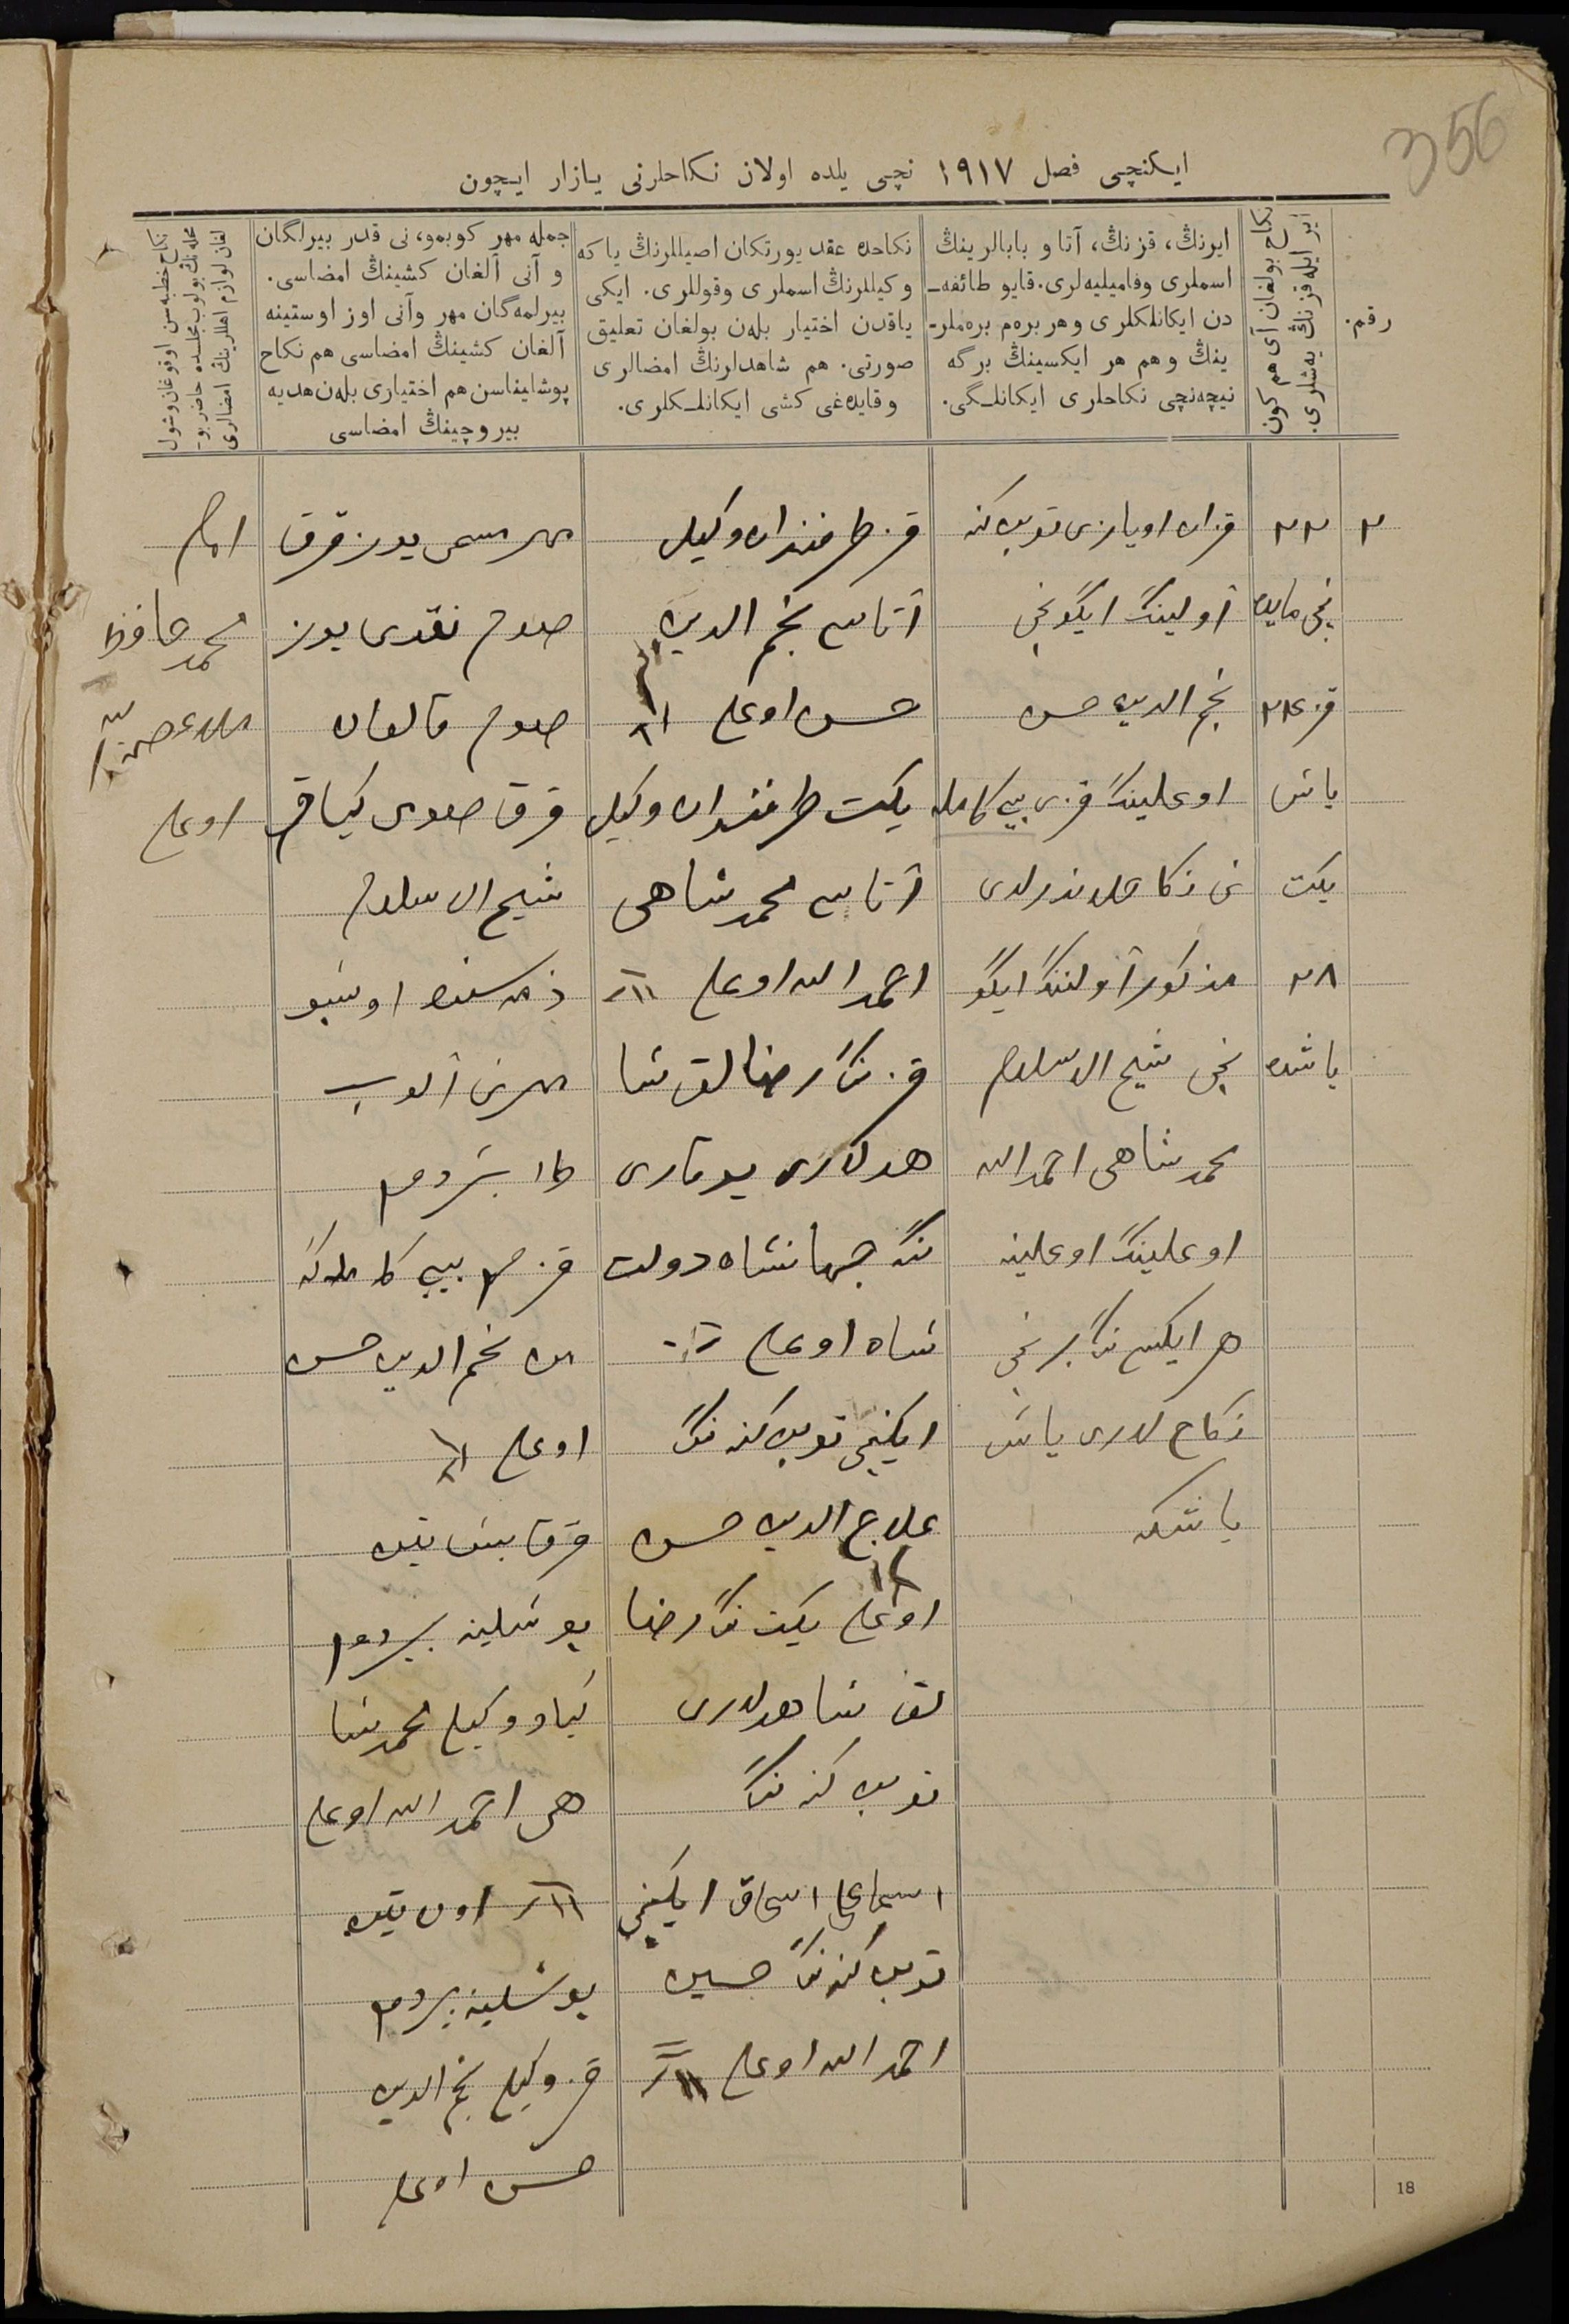 356
ایکنچی فصل ۱۹۱۷ نچی یلده اولان نکاحلرنی یازار ایچون
رقم.
نکاح بولغان آی هم کون
ایر ایله قزنڭ یهشلری.
ایرنڭ، قزنڭ، آتا و بابالرینڭ
اسملری وفامیلیه‌لری. قایو طائفه‌ـ
دن ایکانلکلری و هر برەم برەملرـ
ینڭ و هم هر ایکسینڭ برگه
نیچه‌نچی نکاحلری ایکانلـگی.
نکاحده عقد یورتکان اصیللرنڭ یا که
وکیللرنڭ اسملری وقوللری. ایکی
یاقدن اختیار بله‌ن بولغان تعلیق
صورتی. هم شاهدلرنڭ امضالری
وقایده‌غی کشی ایکانلـکلری.
جمله مهر کوبمو، نی قدر بیرلگان
و آنی آلغان کشینڭ امضاسی.
بیرلمه‌گان مهر وآنی اوز اوستینه
آلغان کشینڭ امضاسی هم نکاح
پوشلیناسن هم اختیاری بله‌ن هدیه
بیروچینڭ امضاسی
نکاح خطبه‌سن اوقوغان و شول
محله‌نڭ بولوب مجلسده حاضر بوـ
لغان لوازم اهللرینڭ امضالری
۲
۲۲
نچی مایده
قز ۲۱
یاش
یکت
۲۸
یاشده
قزان اویازی توبن کنه
آولینڭ ایگونچی
نجم الدین حسن
اوغلینڭ قزی بیبی کامله
نی نکاحلاندرلدی
مذکور آولننڭ ایگو
نچی شیخ الاسلام
محمد شاهی احمد الله
اوغلینڭ اوغلینه
هر ایکسی نڭ برنچی
نکاح لاری یاش
یاشکه
قز طرفندان وکیل
آتاسی نجم الدین
حسن اوغلی
یکت طرفندان وکیل
آتاسی محمد شاهی
احمد الله اوغلی
قز نڭ رضالق شا
هدلاری یوقاری
نڭ جهانشاه دولت
شاه اوغلی
ایکنچی توبن کنه نڭ
علاج الدین حسن
اوغلی یکت نڭ رضا
لق شاهدلاری
توبن کنه نڭ
اسماعیل اسحاق ایکنچی
توبن کنه نڭ حسین
احمد الله اوغلی
مهر مسمی یوز قرق
صوم نقدی یوز
صوم قالغان
قرق صومی کیاو
شیخ الاسلام
ذمه سنده اوشبو
مهرنی آلوب
بیردم
قزم بیبی کامله گه
من نجم الدین حسن
اوغلی
قرق بیش تین
پوشلینه بیردم
کیاو وکیلی محمد شا
هی احمد الله اوغلی
اون تین
پوشلینه بیردم
قز وکیلی نجم الدین
حسن اوغلی
امام
محمد حافظ
اوغلی
18